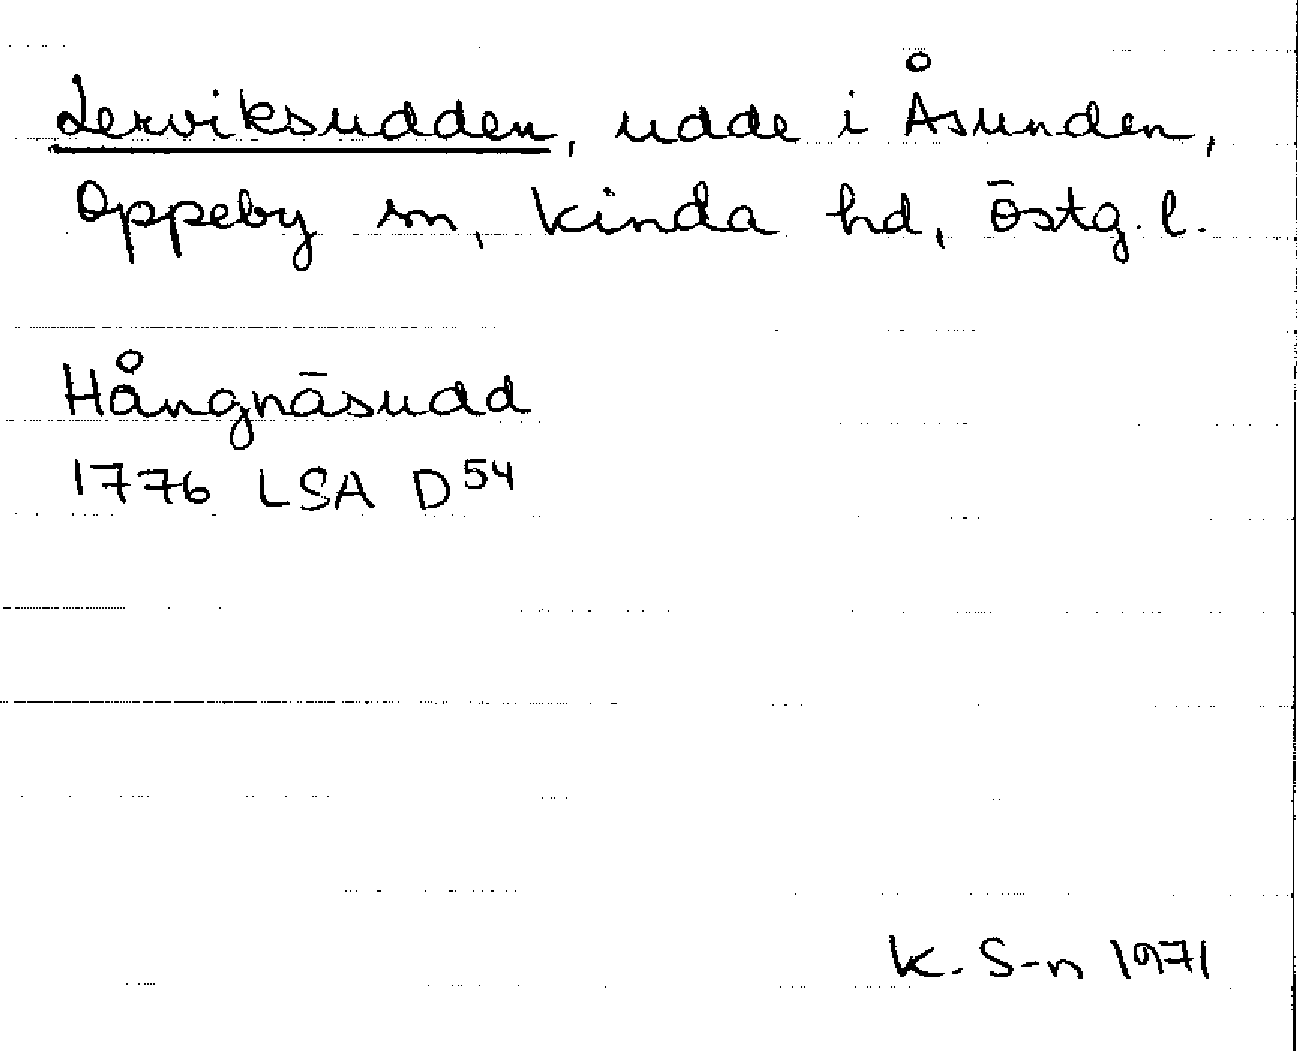 Lerviksudden, udde i Åsunden,
Oppeby sn, Kinda hd, Östg. l.
Hångnäsudd
1776 LSA D 54
K. S-n 1971